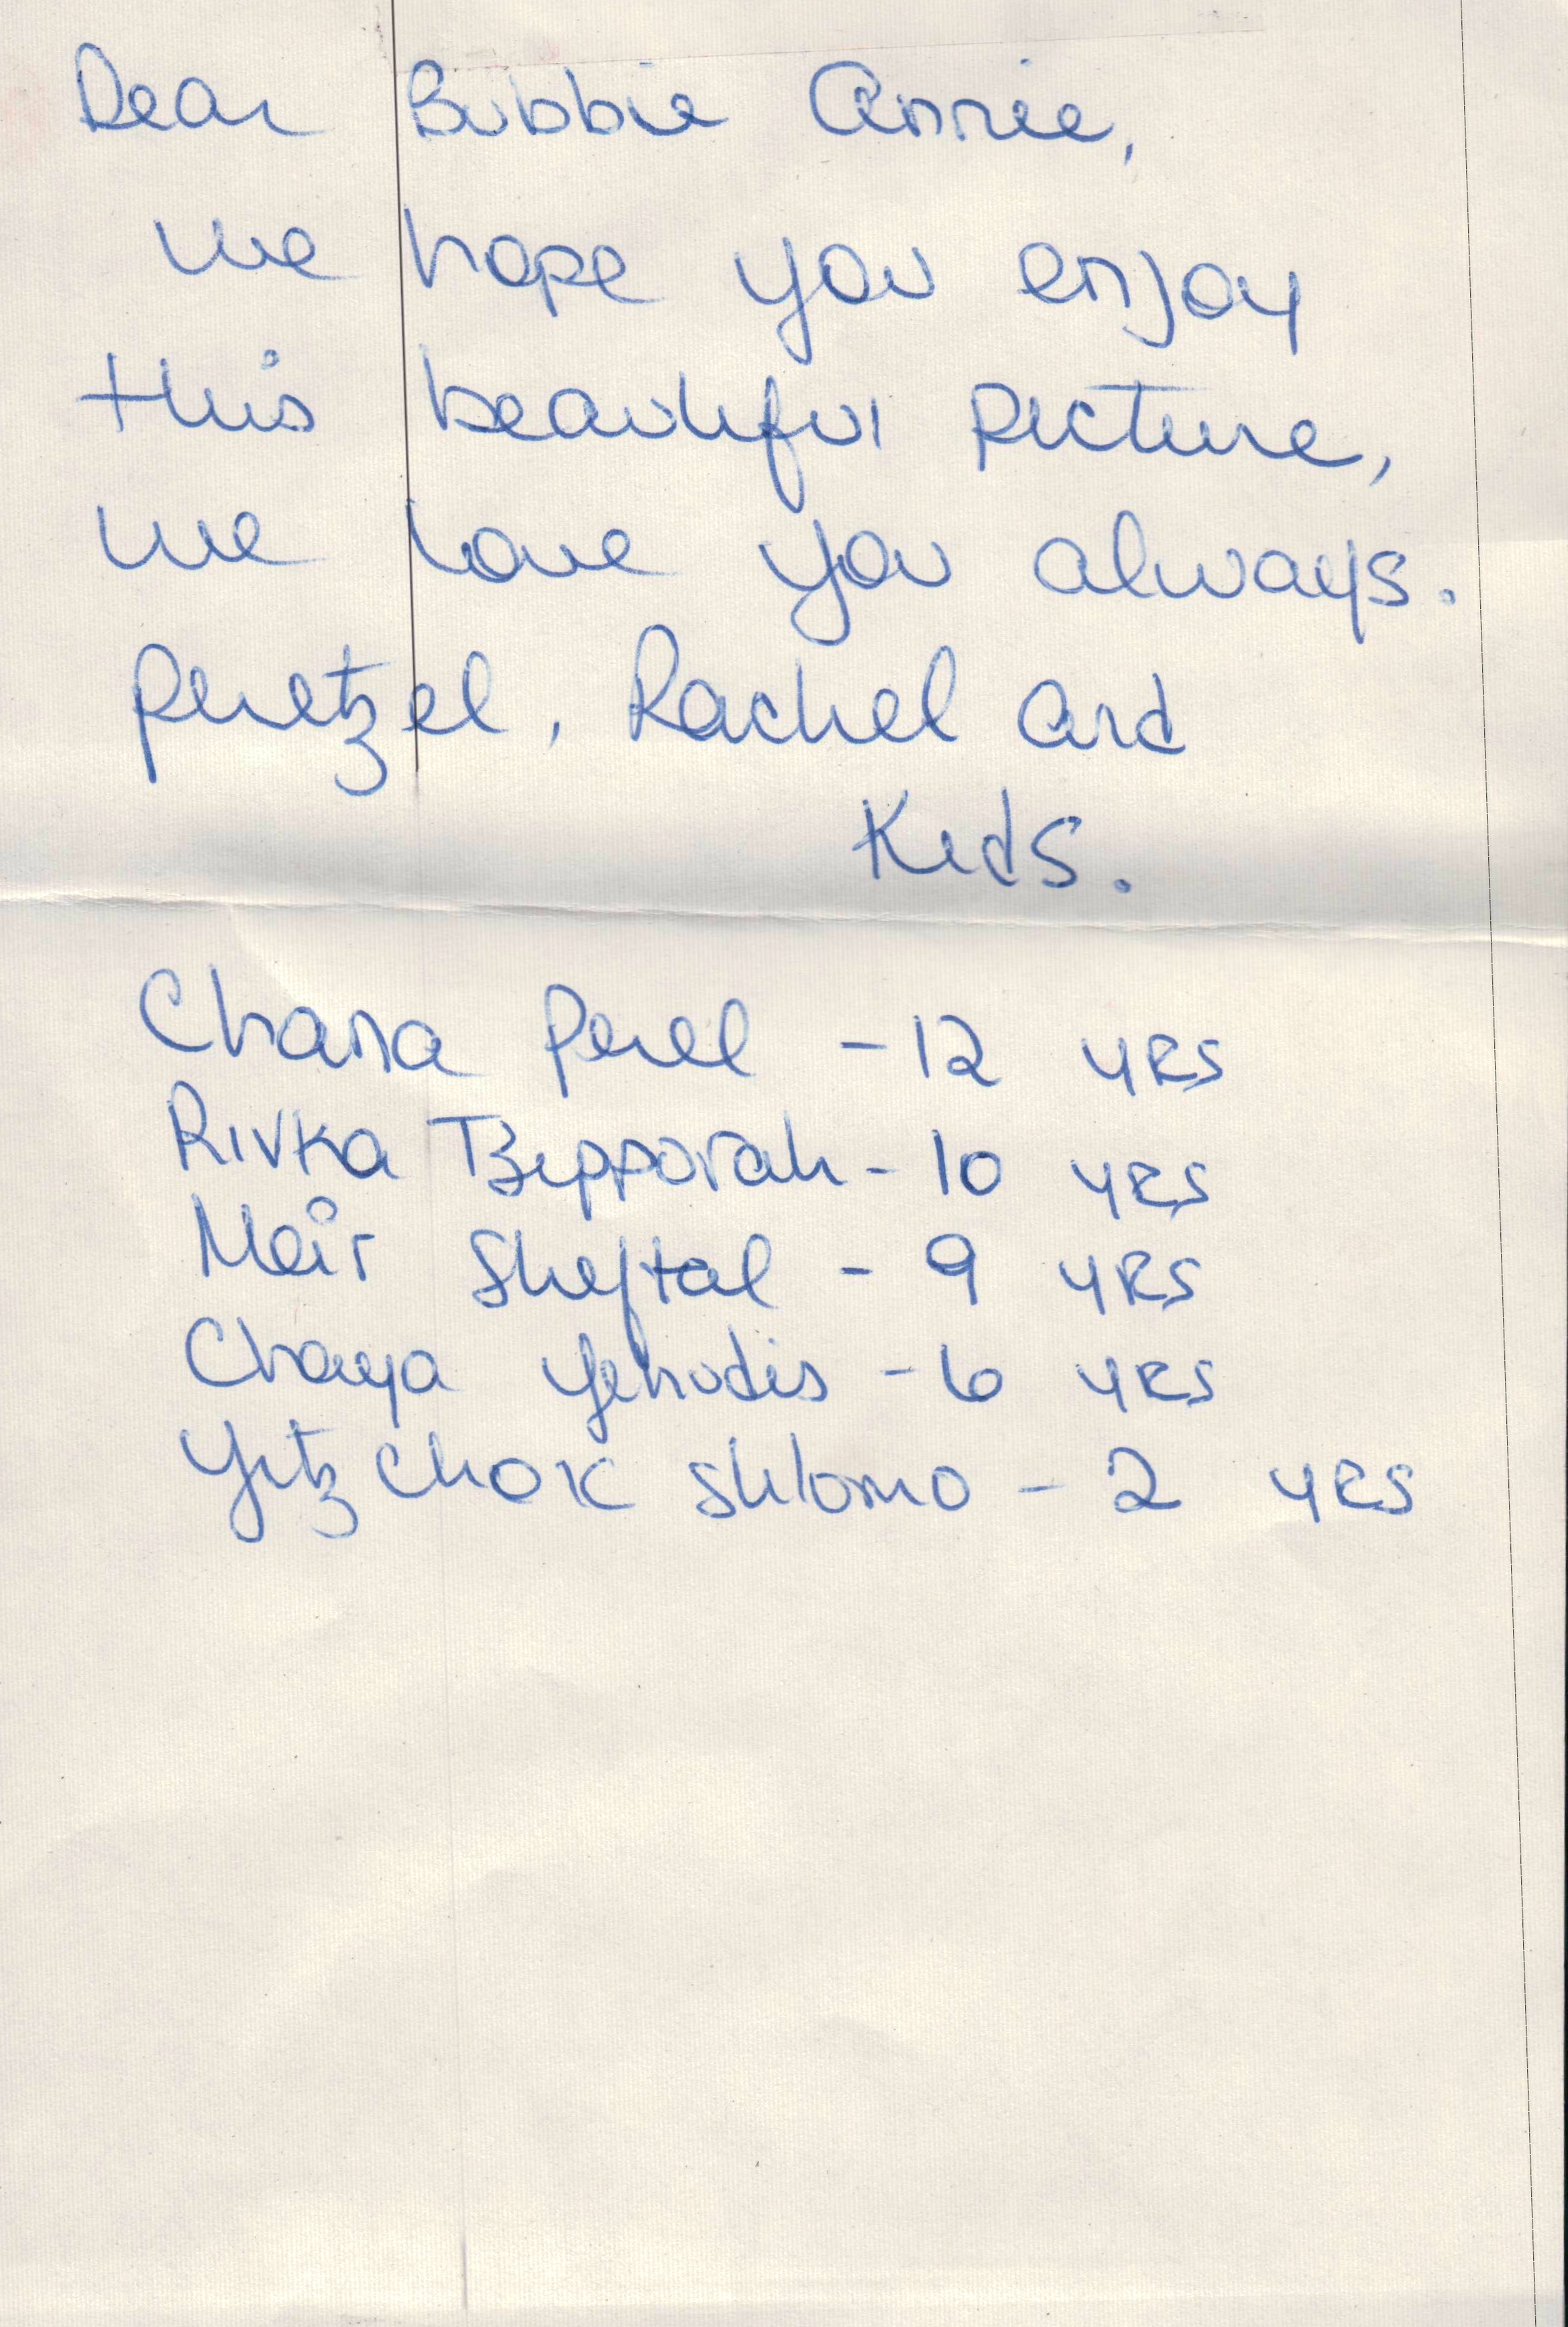 Dear Bubbie Annie,
we hope you enjoy
this beautiful picture,
we love you always.
Pretzel, Rachel and
Kids.
Chana Perel - 12 YRS
Rivka Tzipporah - 10 YRS
Meir Sheftal - 9 YRS
Chaya Yehudis - 6 YRS
Yitzchok Shlomo - 2 YRS